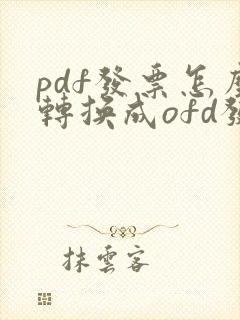 pdf發票怎
轉換成ofd
抹雲客